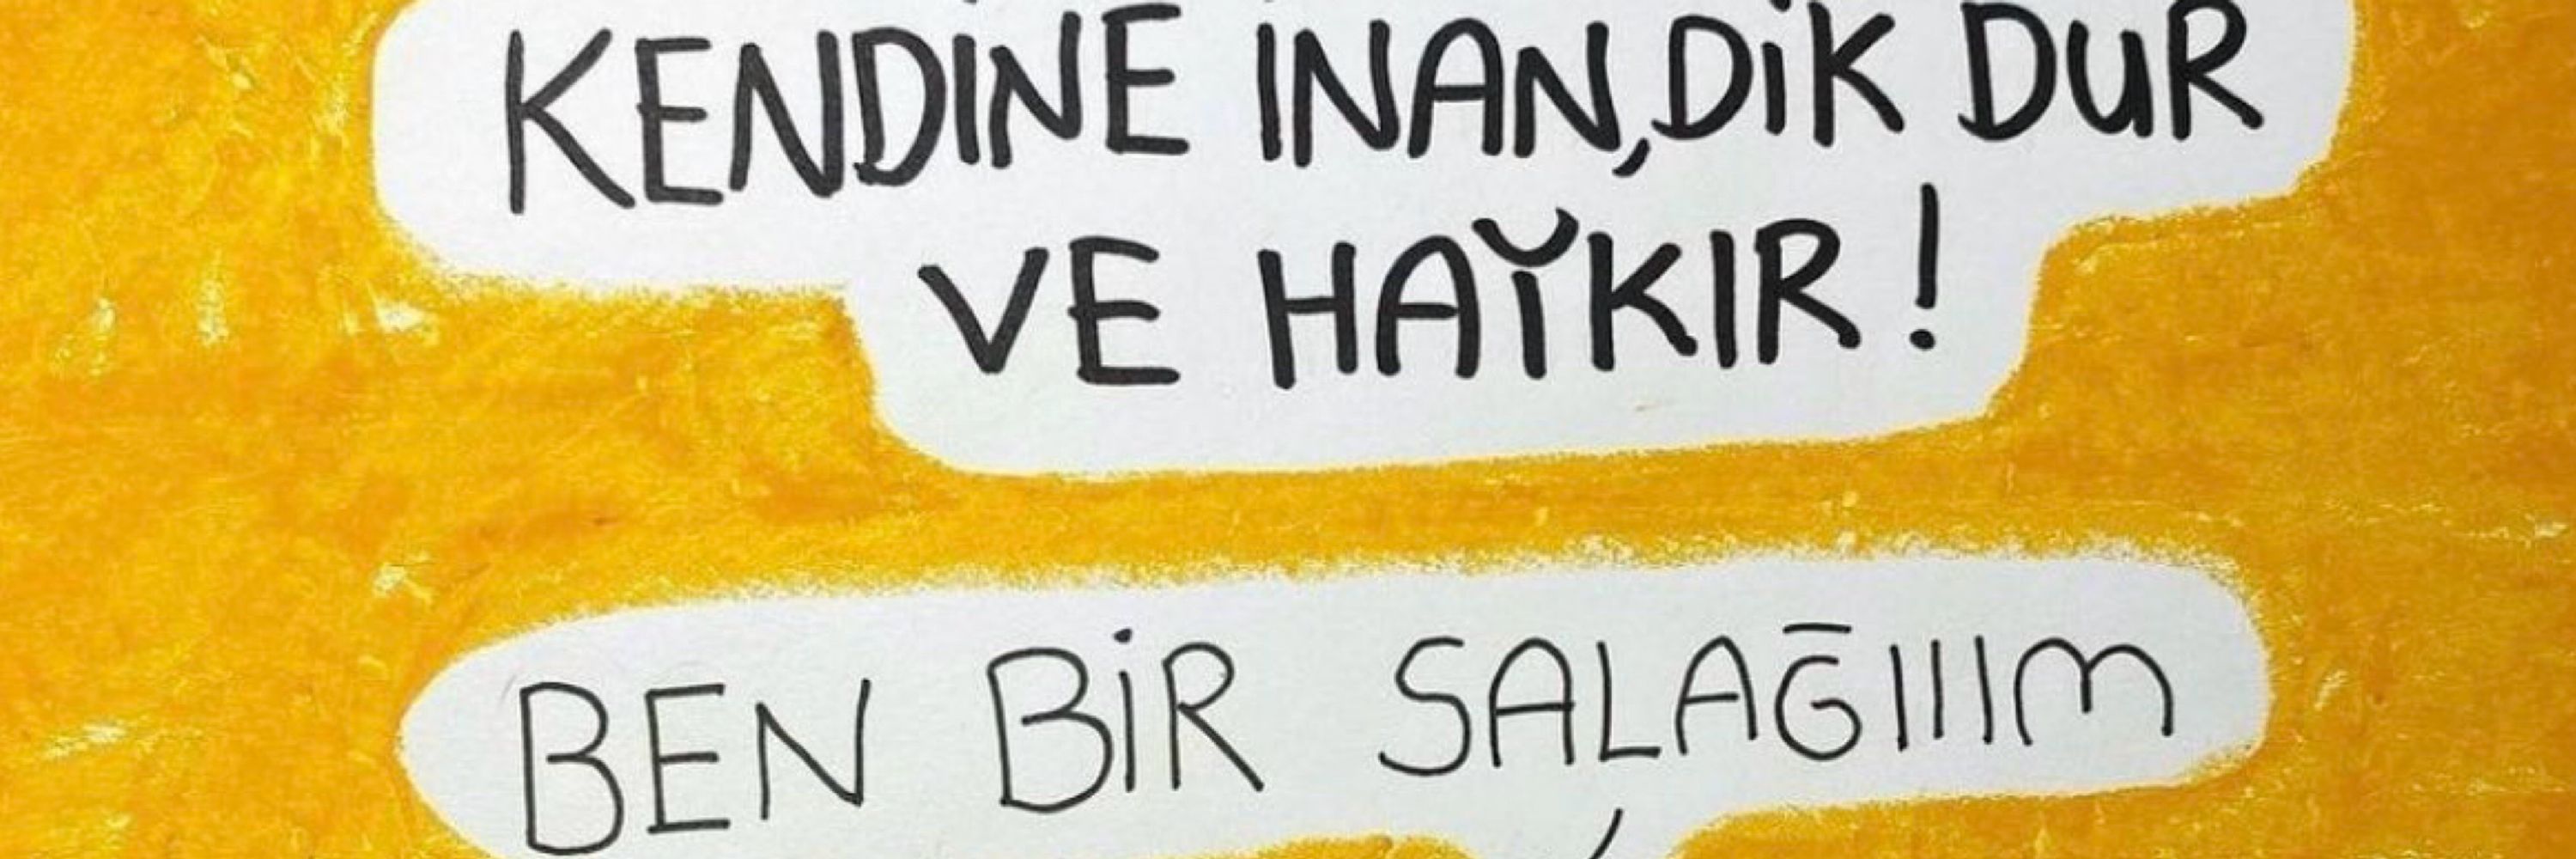 KENDİNE İNAN, DİK DUR
VE HAYKIR!
BEN BİR SALAĞIIIM